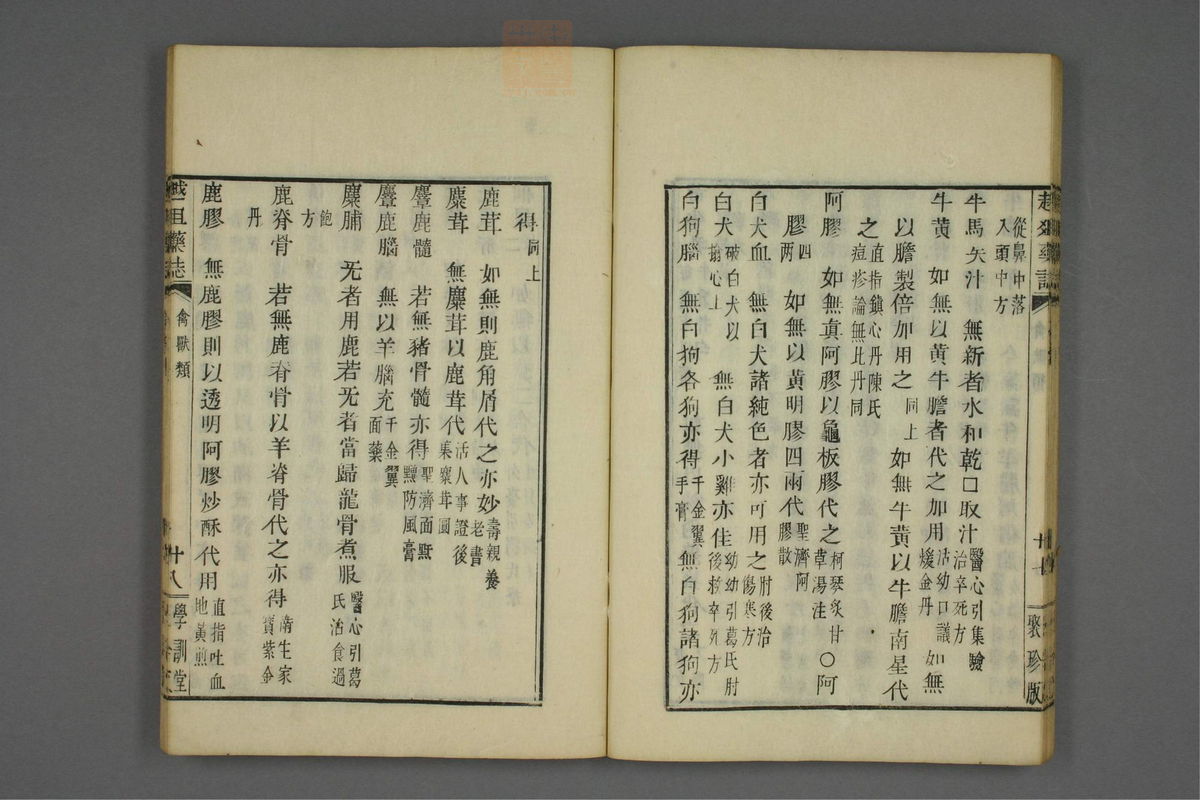 從鼻中落
入頭中方
牛馬矢汁 無新者水和乾口取汁醫心引集驗治卒死方
牛黃 如無以黃牛膽者代之加用活幼口議煖金丹 如無
以膽製倍加用之同上 如無牛黃以牛膽南星代
之直指鎮心丹陳氏痘疹論無此丹同
阿膠 如無真阿膠以龜板膠代之柯琴炙甘草湯注○阿
膠四兩 如無以黃明膠四兩代聖濟阿膠散
白犬血 無白犬諸純色者亦可用之肘後治傷寒方
白犬破白犬以搨心上 無白犬小雞亦佳幼幼引葛氏肘後救卒死方
白狗腦 無白狗各狗亦得千金翼手膏 無白狗諸狗亦
聚珍版
得同上
鹿茸 如無則鹿角屑代之亦妙壽親養老書
麋茸 無麋茸以鹿茸代活人事證後集麋茸圓
麞鹿髓 若無豬骨髓亦得聖濟面䵟䵳防風膏
麞鹿腦 無以羊腦充千金翼面藥
麋脯 无者用鹿若无者當歸龍骨煮服醫心引葛氏治食過
飽方
鹿脊骨 若無鹿脊骨以羊脊骨代之亦得衛生家寶紫金
丹
鹿膠 無鹿膠則以透明阿膠炒酥代用直指吐血地黃煎
越俎藥誌 禽獸類 十八 學訓堂